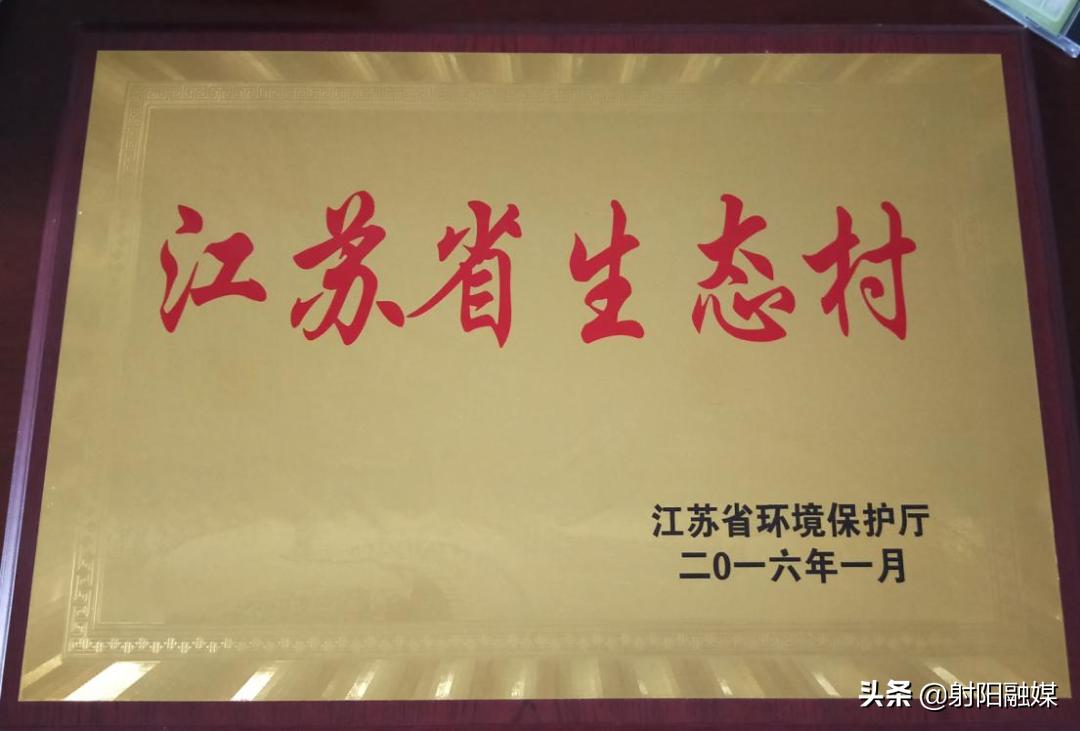 江苏省生态村
江苏省环境保护厅
二0一六年一月
头条 @射阳融媒